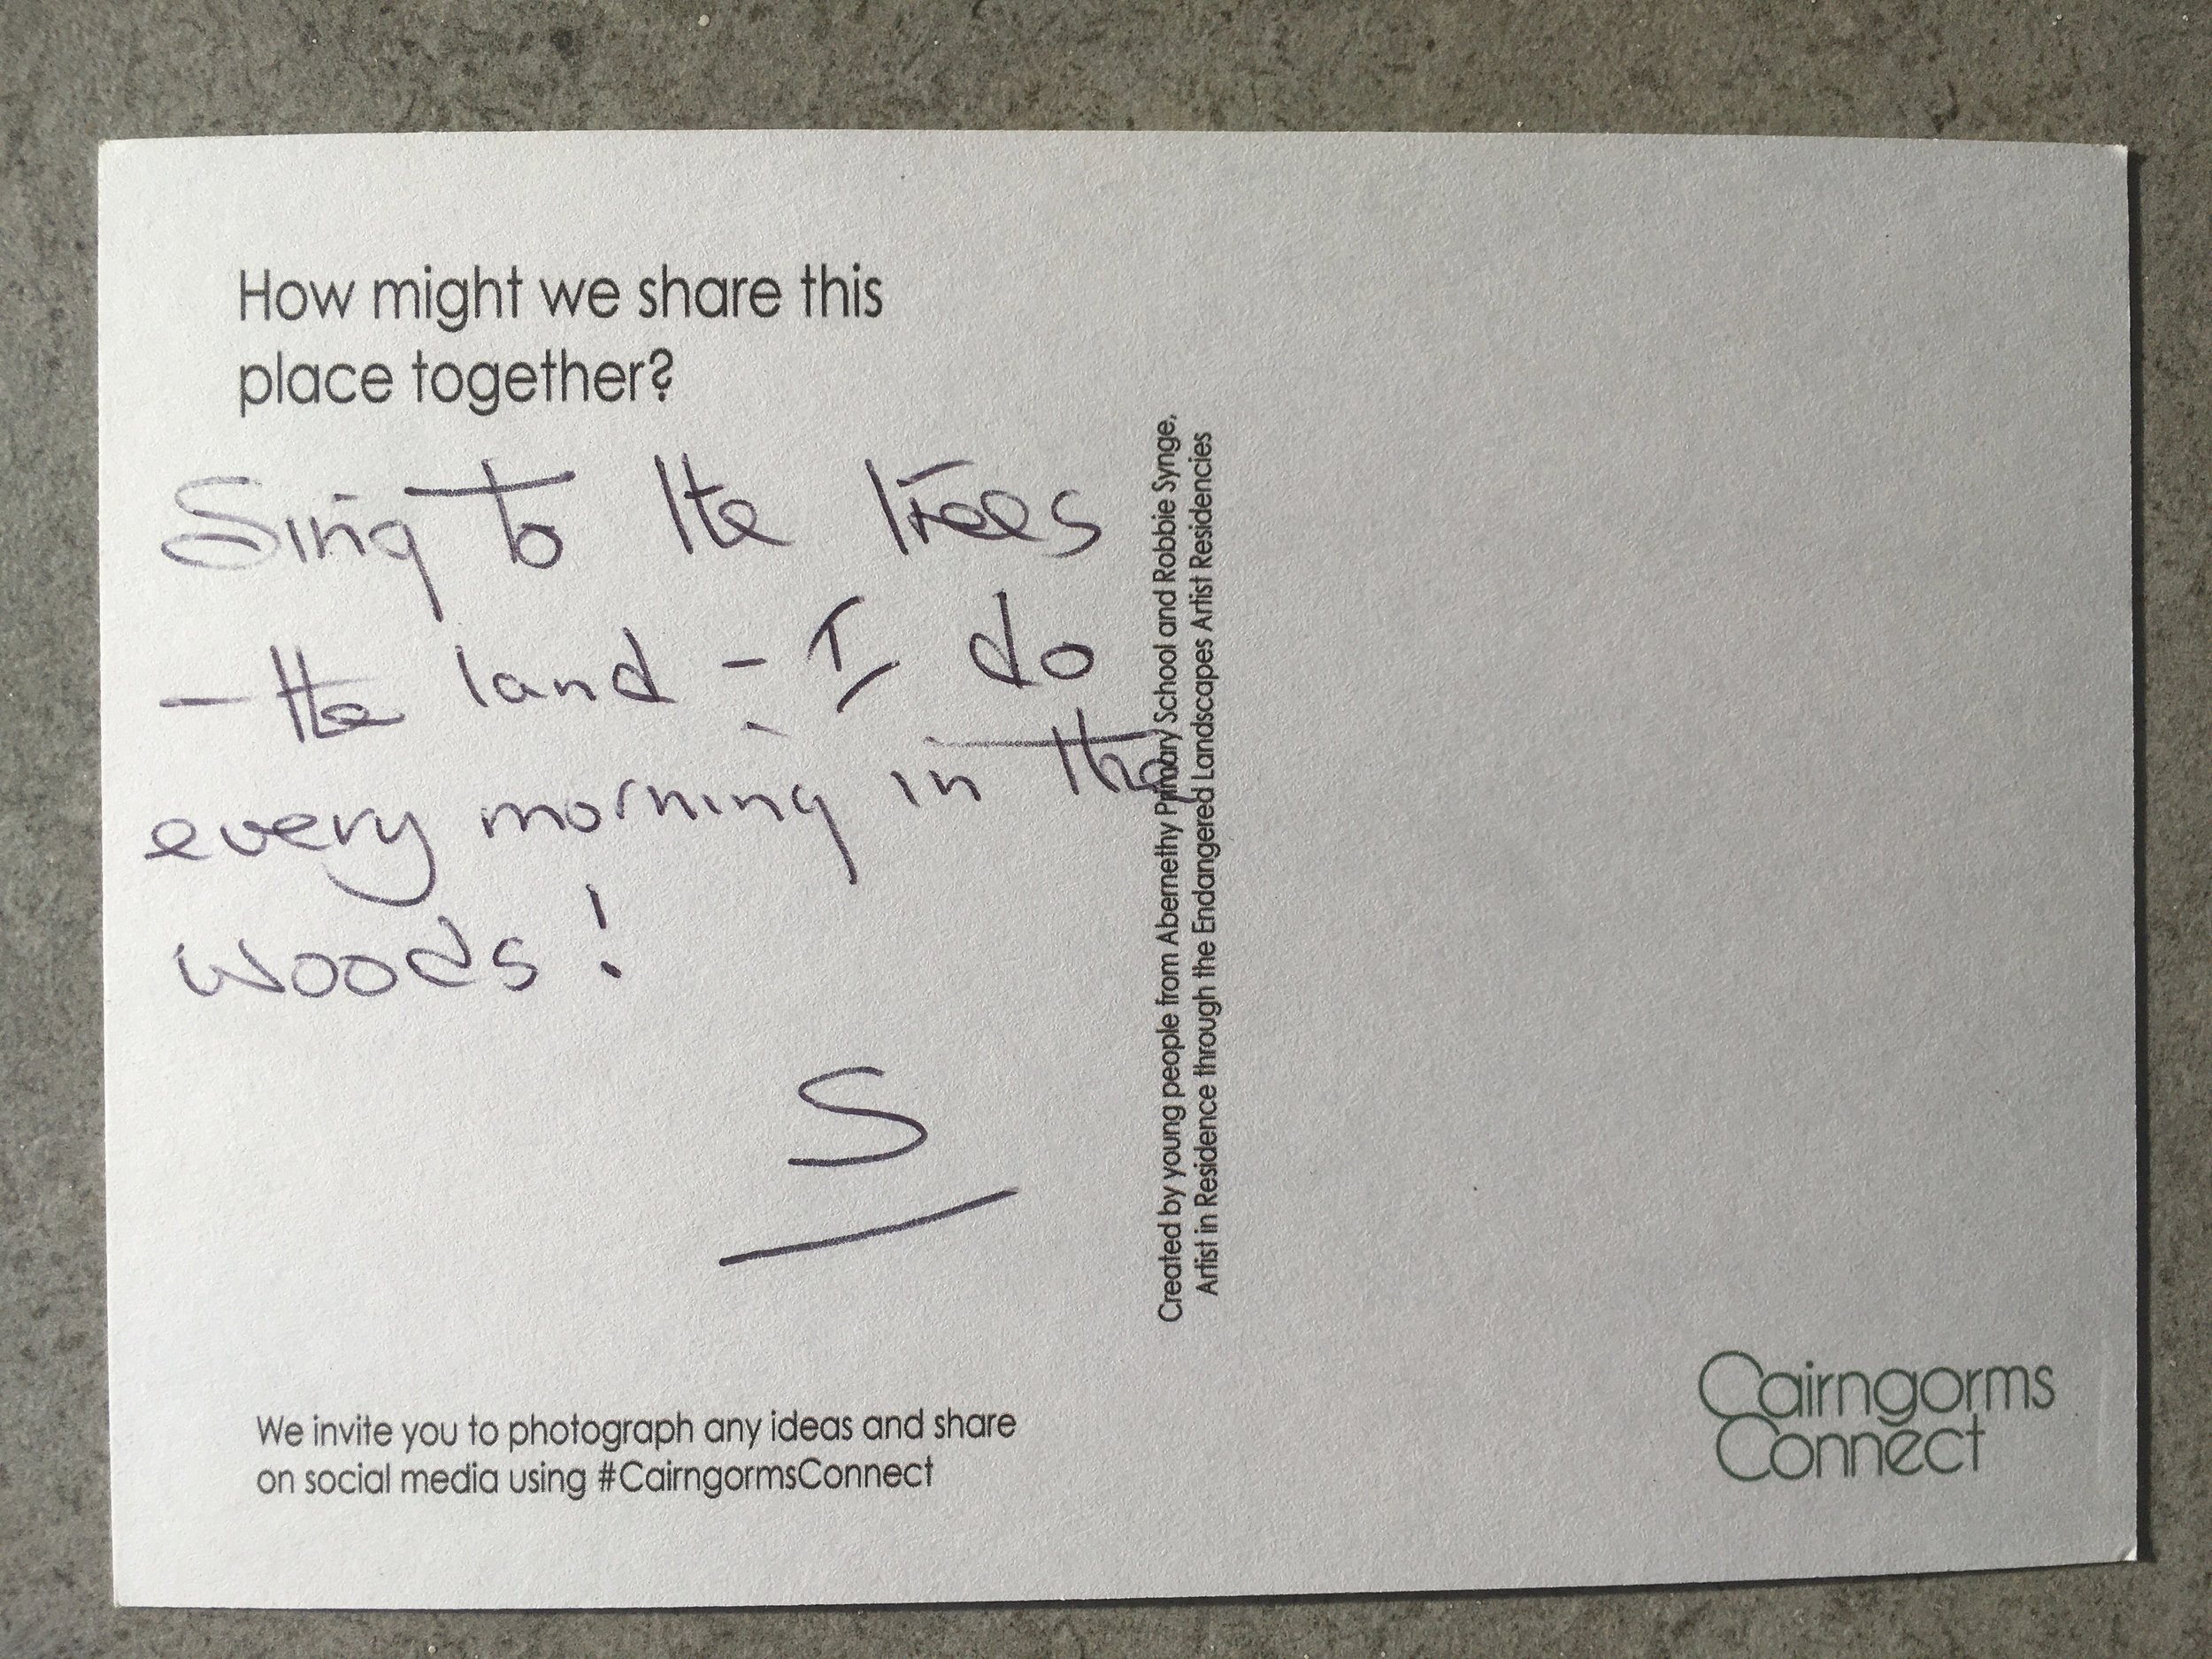 How might we share this
place together?
Sing to the trees
- the land - I do
every morning in the
woods!
S
We invite you to photograph any ideas and share
on social media using #CairngormsConnect
Created by young people from Abernethy Primary School and Robbie Synge,
Artist in Residence through the Endangered Landscapes Artist Residencies
Cairngorms
Connect